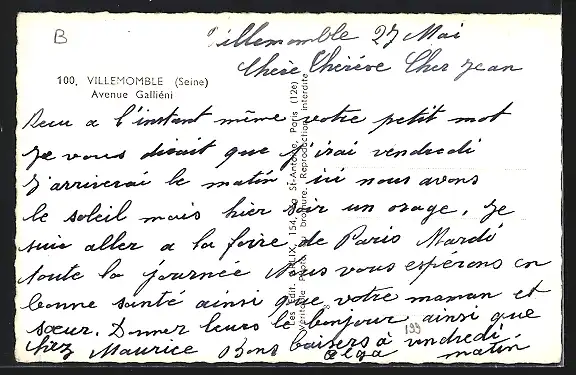 B
Villemomble 27 Mai
Chère Théréve Cher Jean
100. VILLEMOMBLE (Seine)
Avenue Galliéni
Recu a l'instant même votre petit mot
Je vous dirait que j'irai vendredi
J'arriverai le matin ici nous avons
le soleil mais hier soir un orage. Je
suis aller a la foire de Paris Mardi
toute la journée Nous vous espérons en
bonne santé ainsi que votre maman et
sœur. Donner leurs le bonjour ainsi que
chez Maurice Bons baisers à vendredi
Olga matin
199
Les Edit. 154, St-Antoine, Paris (12e)
Véritable Photo. bromure. Reproduction interdite